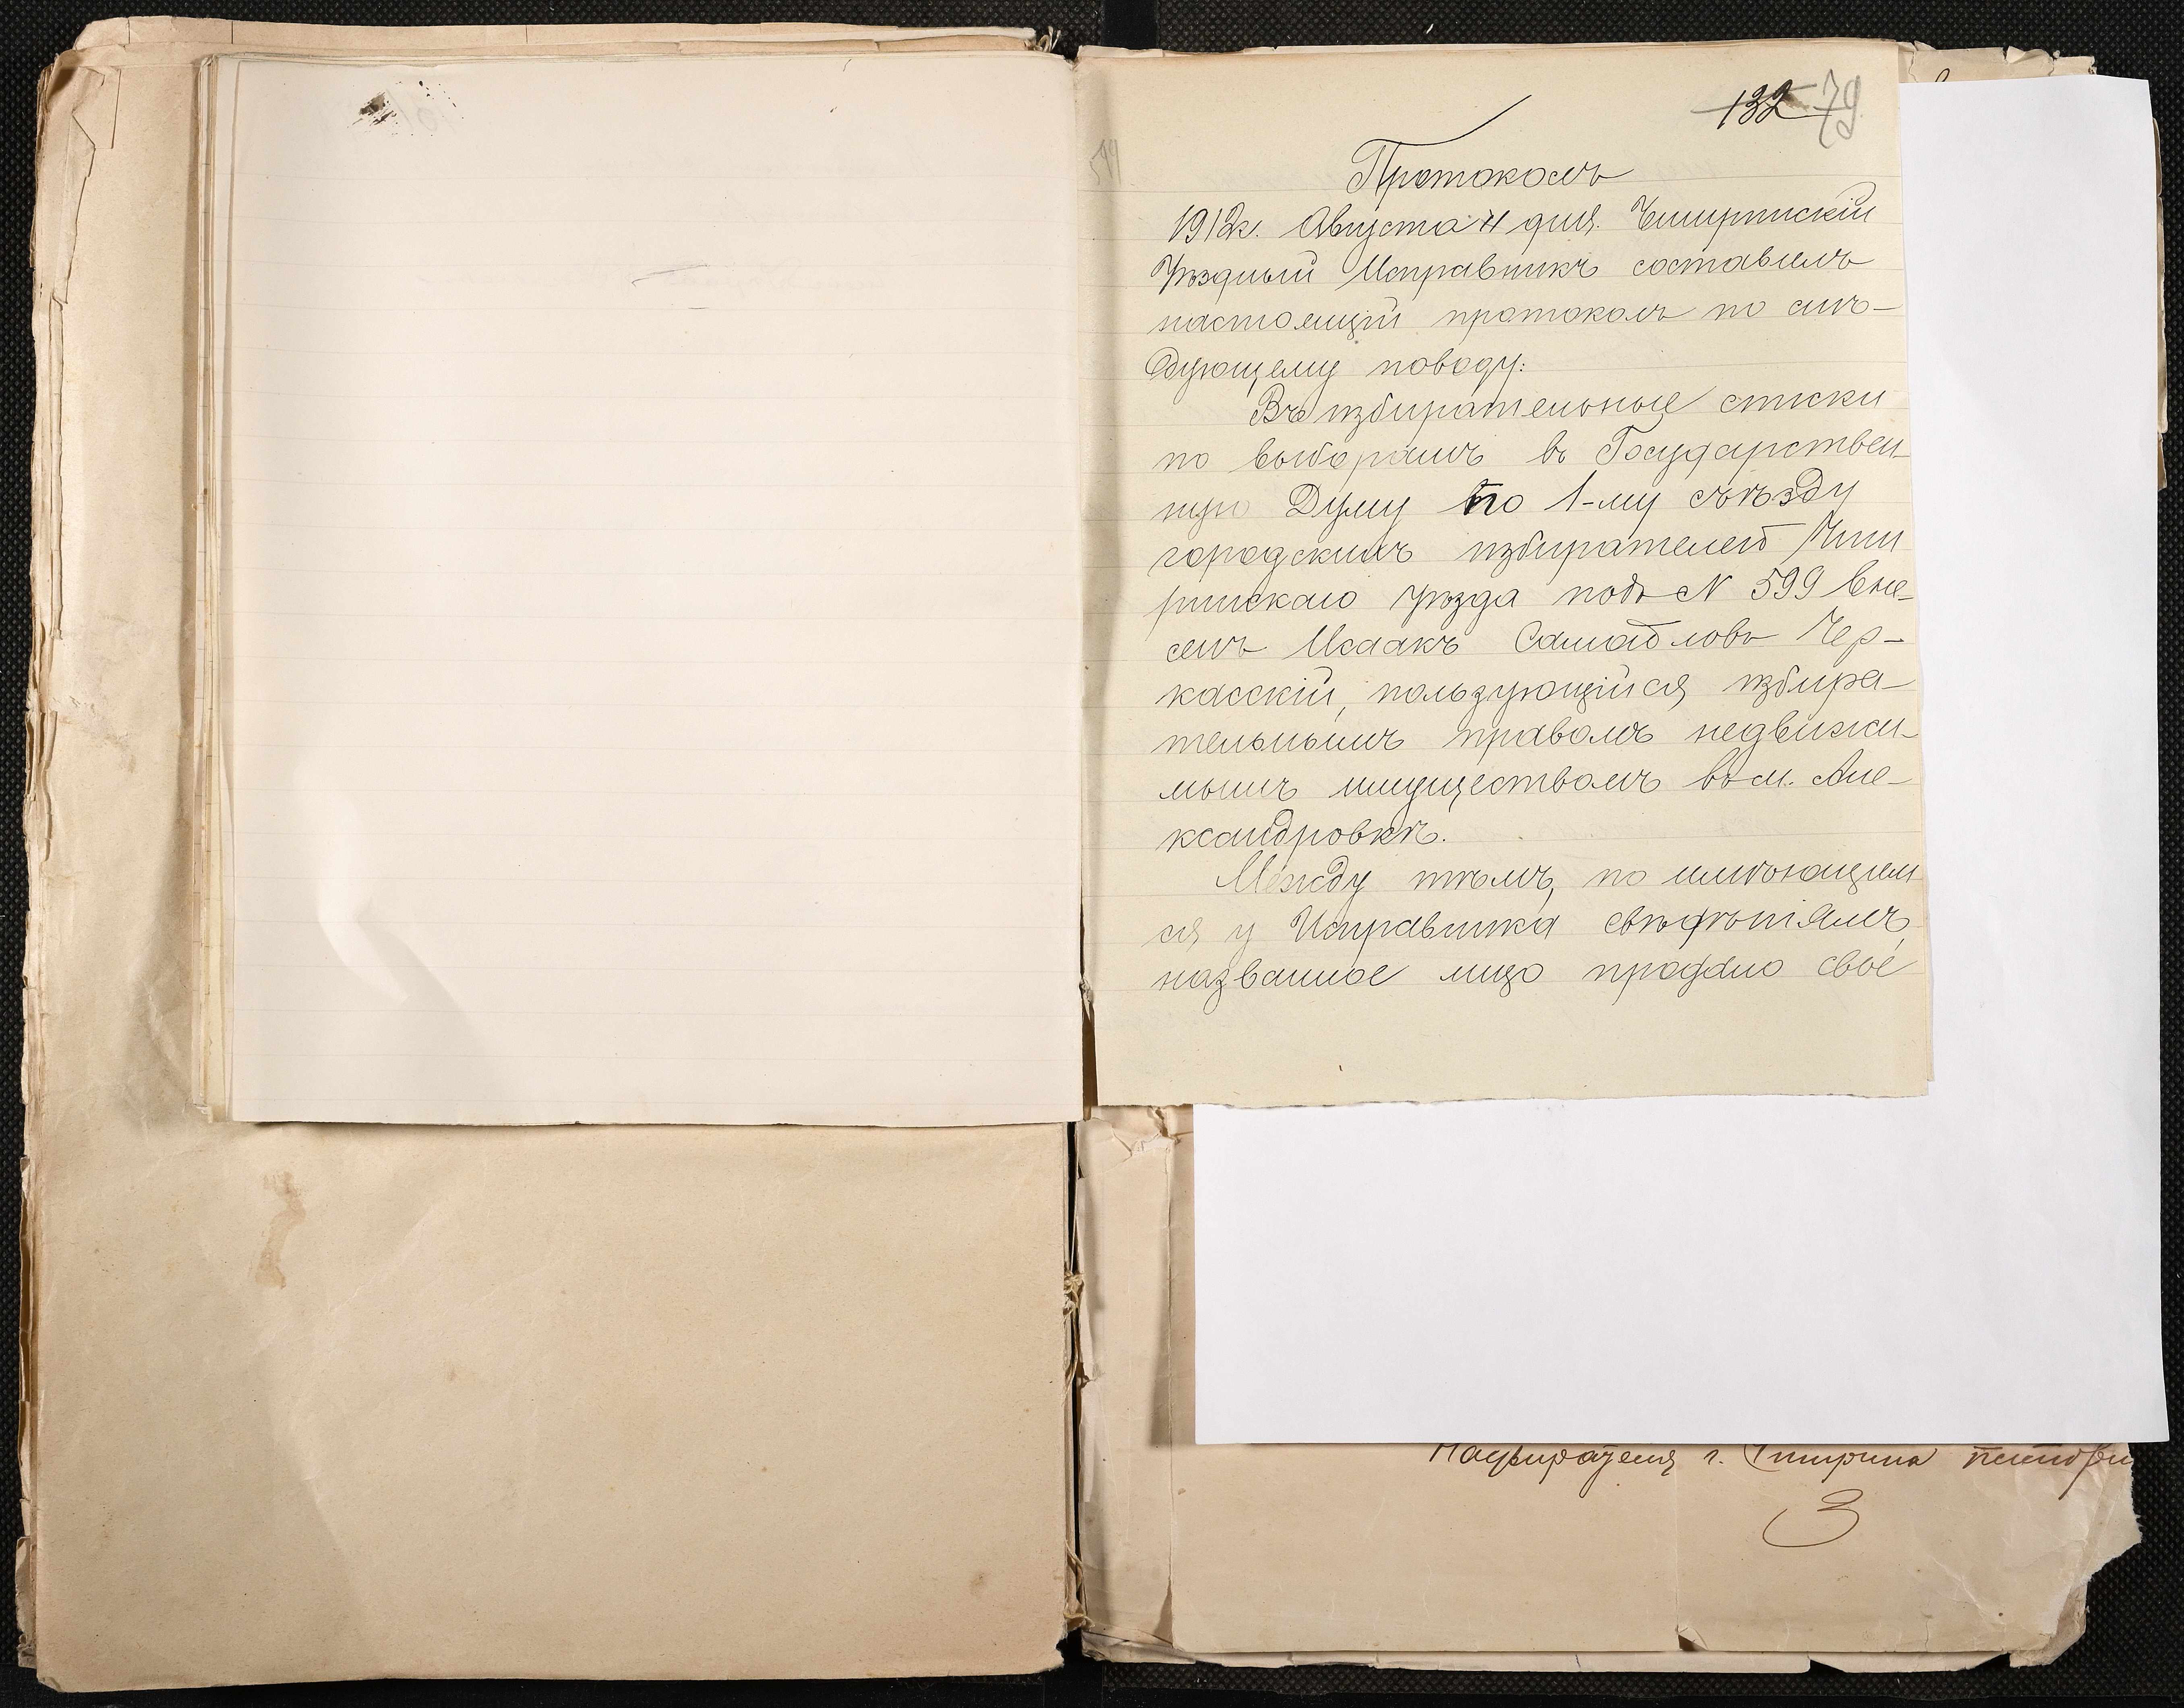 132 79
Протоколъ
1912г. Августа 4 дня. Чигиринскій
Уѣздный Исправникъ составилъ
настоящій протоколъ по слѣ-
дующему поводу:
Въ избирательные списки
по выборамъ въ Государствен-
ную Думу по 1-му съѣзду
городскихъ избирателей Чиги
ринскаго уѣзда подъ N 599 вне-
сенъ Исаакъ Самойловъ Чер-
касскій, пользующійся избира-
тельнымъ правомъ недвижи-
мымъ имуществомъ въ м. Але-
ксандровкѣ.
Между тѣмъ, по имѣющим
ся у Исправника свѣдѣніямъ,
названное лицо продало свое
Надзирателя г. Чигирина
3